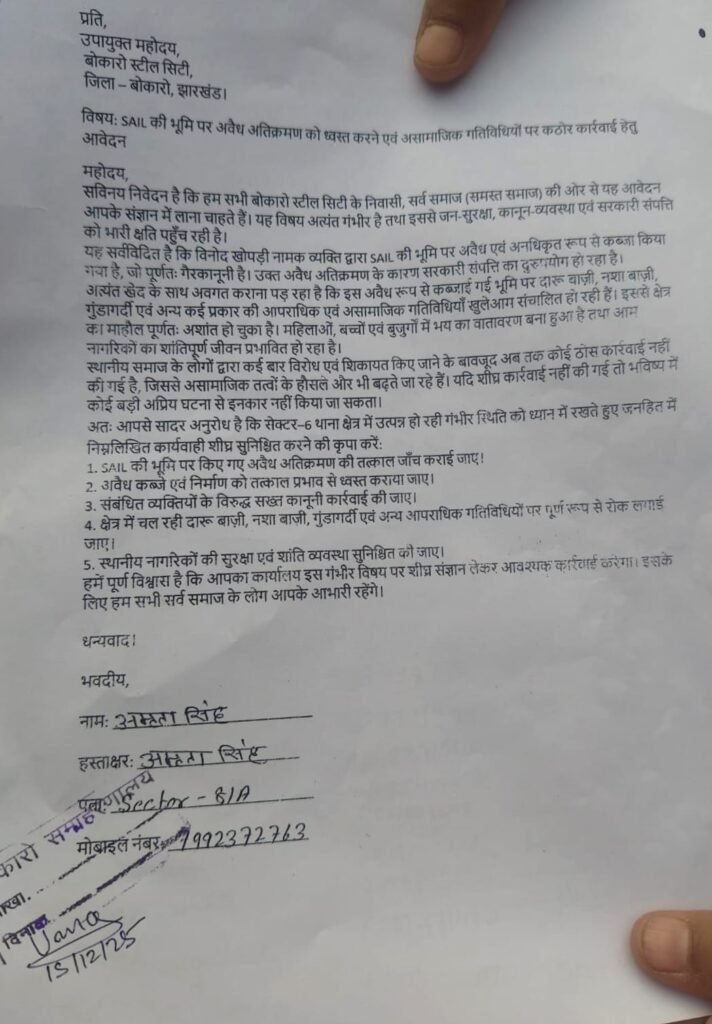 प्रति,
उपायुक्त महोदय,
बोकारो स्टील सिटी,
जिला – बोकारो, झारखंड।
विषय: SAIL की भूमि पर अवैध अतिक्रमण को ध्वस्त करने एवं असामाजिक गतिविधियों पर कठोर कार्रवाई हेतु
आवेदन
महोदय,
सविनय निवेदन है कि हम सभी बोकारो स्टील सिटी के निवासी, सर्व समाज (समस्त समाज) की ओर से यह आवेदन
आपके संज्ञान में लाना चाहते हैं। यह विषय अत्यंत गंभीर है तथा इससे जन-सुरक्षा, कानून-व्यवस्था एवं सरकारी संपत्ति
को भारी क्षति पहुँच रही है।
यह सर्वविदित है कि विनोद खोपड़ी नामक व्यक्ति द्वारा SAIL की भूमि पर अवैध एवं अनधिकृत रूप से कब्जा किया
गया है, जो पूर्णतः गैरकानूनी है। उक्त अवैध अतिक्रमण के कारण सरकारी संपत्ति का दुरुपयोग हो रहा है।
अत्यंत खेद के साथ अवगत कराना पड़ रहा है कि इस अवैध रूप से कब्जाई गई भूमि पर दारू बाज़ी, नशा बाज़ी,
गुंडागर्दी एवं अन्य कई प्रकार की आपराधिक एवं असामाजिक गतिविधियाँ खुलेआम संचालित हो रही हैं। इससे क्षेत्र
का माहौल पूर्णतः अशांत हो चुका है। महिलाओं, बच्चों एवं बुजुर्गों में भय का वातावरण बना हुआ है तथा आम
नागरिकों का शांतिपूर्ण जीवन प्रभावित हो रहा है।
स्थानीय समाज के लोगों द्वारा कई बार विरोध एवं शिकायत किए जाने के बावजूद अब तक कोई ठोस कार्रवाई नहीं
की गई है, जिससे असामाजिक तत्वों के हौसले और भी बढ़ते जा रहे हैं। यदि शीघ्र कार्रवाई नहीं की गई तो भविष्य में
कोई बड़ी अप्रिय घटना से इनकार नहीं किया जा सकता।
अतः आपसे सादर अनुरोध है कि सेक्टर–6 थाना क्षेत्र में उत्पन्न हो रही गंभीर स्थिति को ध्यान में रखते हुए जनहित में
निम्नलिखित कार्यवाही शीघ्र सुनिश्चित करने की कृपा करें:
1. SAIL की भूमि पर किए गए अवैध अतिक्रमण की तत्काल जाँच कराई जाए।
2. अवैध कब्जे एवं निर्माण को तत्काल प्रभाव से ध्वस्त कराया जाए।
3. संबंधित व्यक्तियों के विरुद्ध सख्त कानूनी कार्रवाई की जाए।
4. क्षेत्र में चल रही दारू बाज़ी, नशा बाज़ी, गुंडागर्दी एवं अन्य आपराधिक गतिविधियों पर पूर्ण रूप से रोक लगाई
जाए।
5. स्थानीय नागरिकों की सुरक्षा एवं शांति व्यवस्था सुनिश्चित की जाए।
हमें पूर्ण विश्वास है कि आपका कार्यालय इस गंभीर विषय पर शीघ्र संज्ञान लेकर आवश्यक कार्रवाई करेगा। इसके
लिए हम सभी सर्व समाज के लोग आपके आभारी रहेंगे।
धन्यवाद।
भवदीय,
नाम: अमृता सिंह
हस्ताक्षर: अमृता सिंह
पता: Sector - 8/A
मोबाइल नंबर: 7992372763
15/12/25